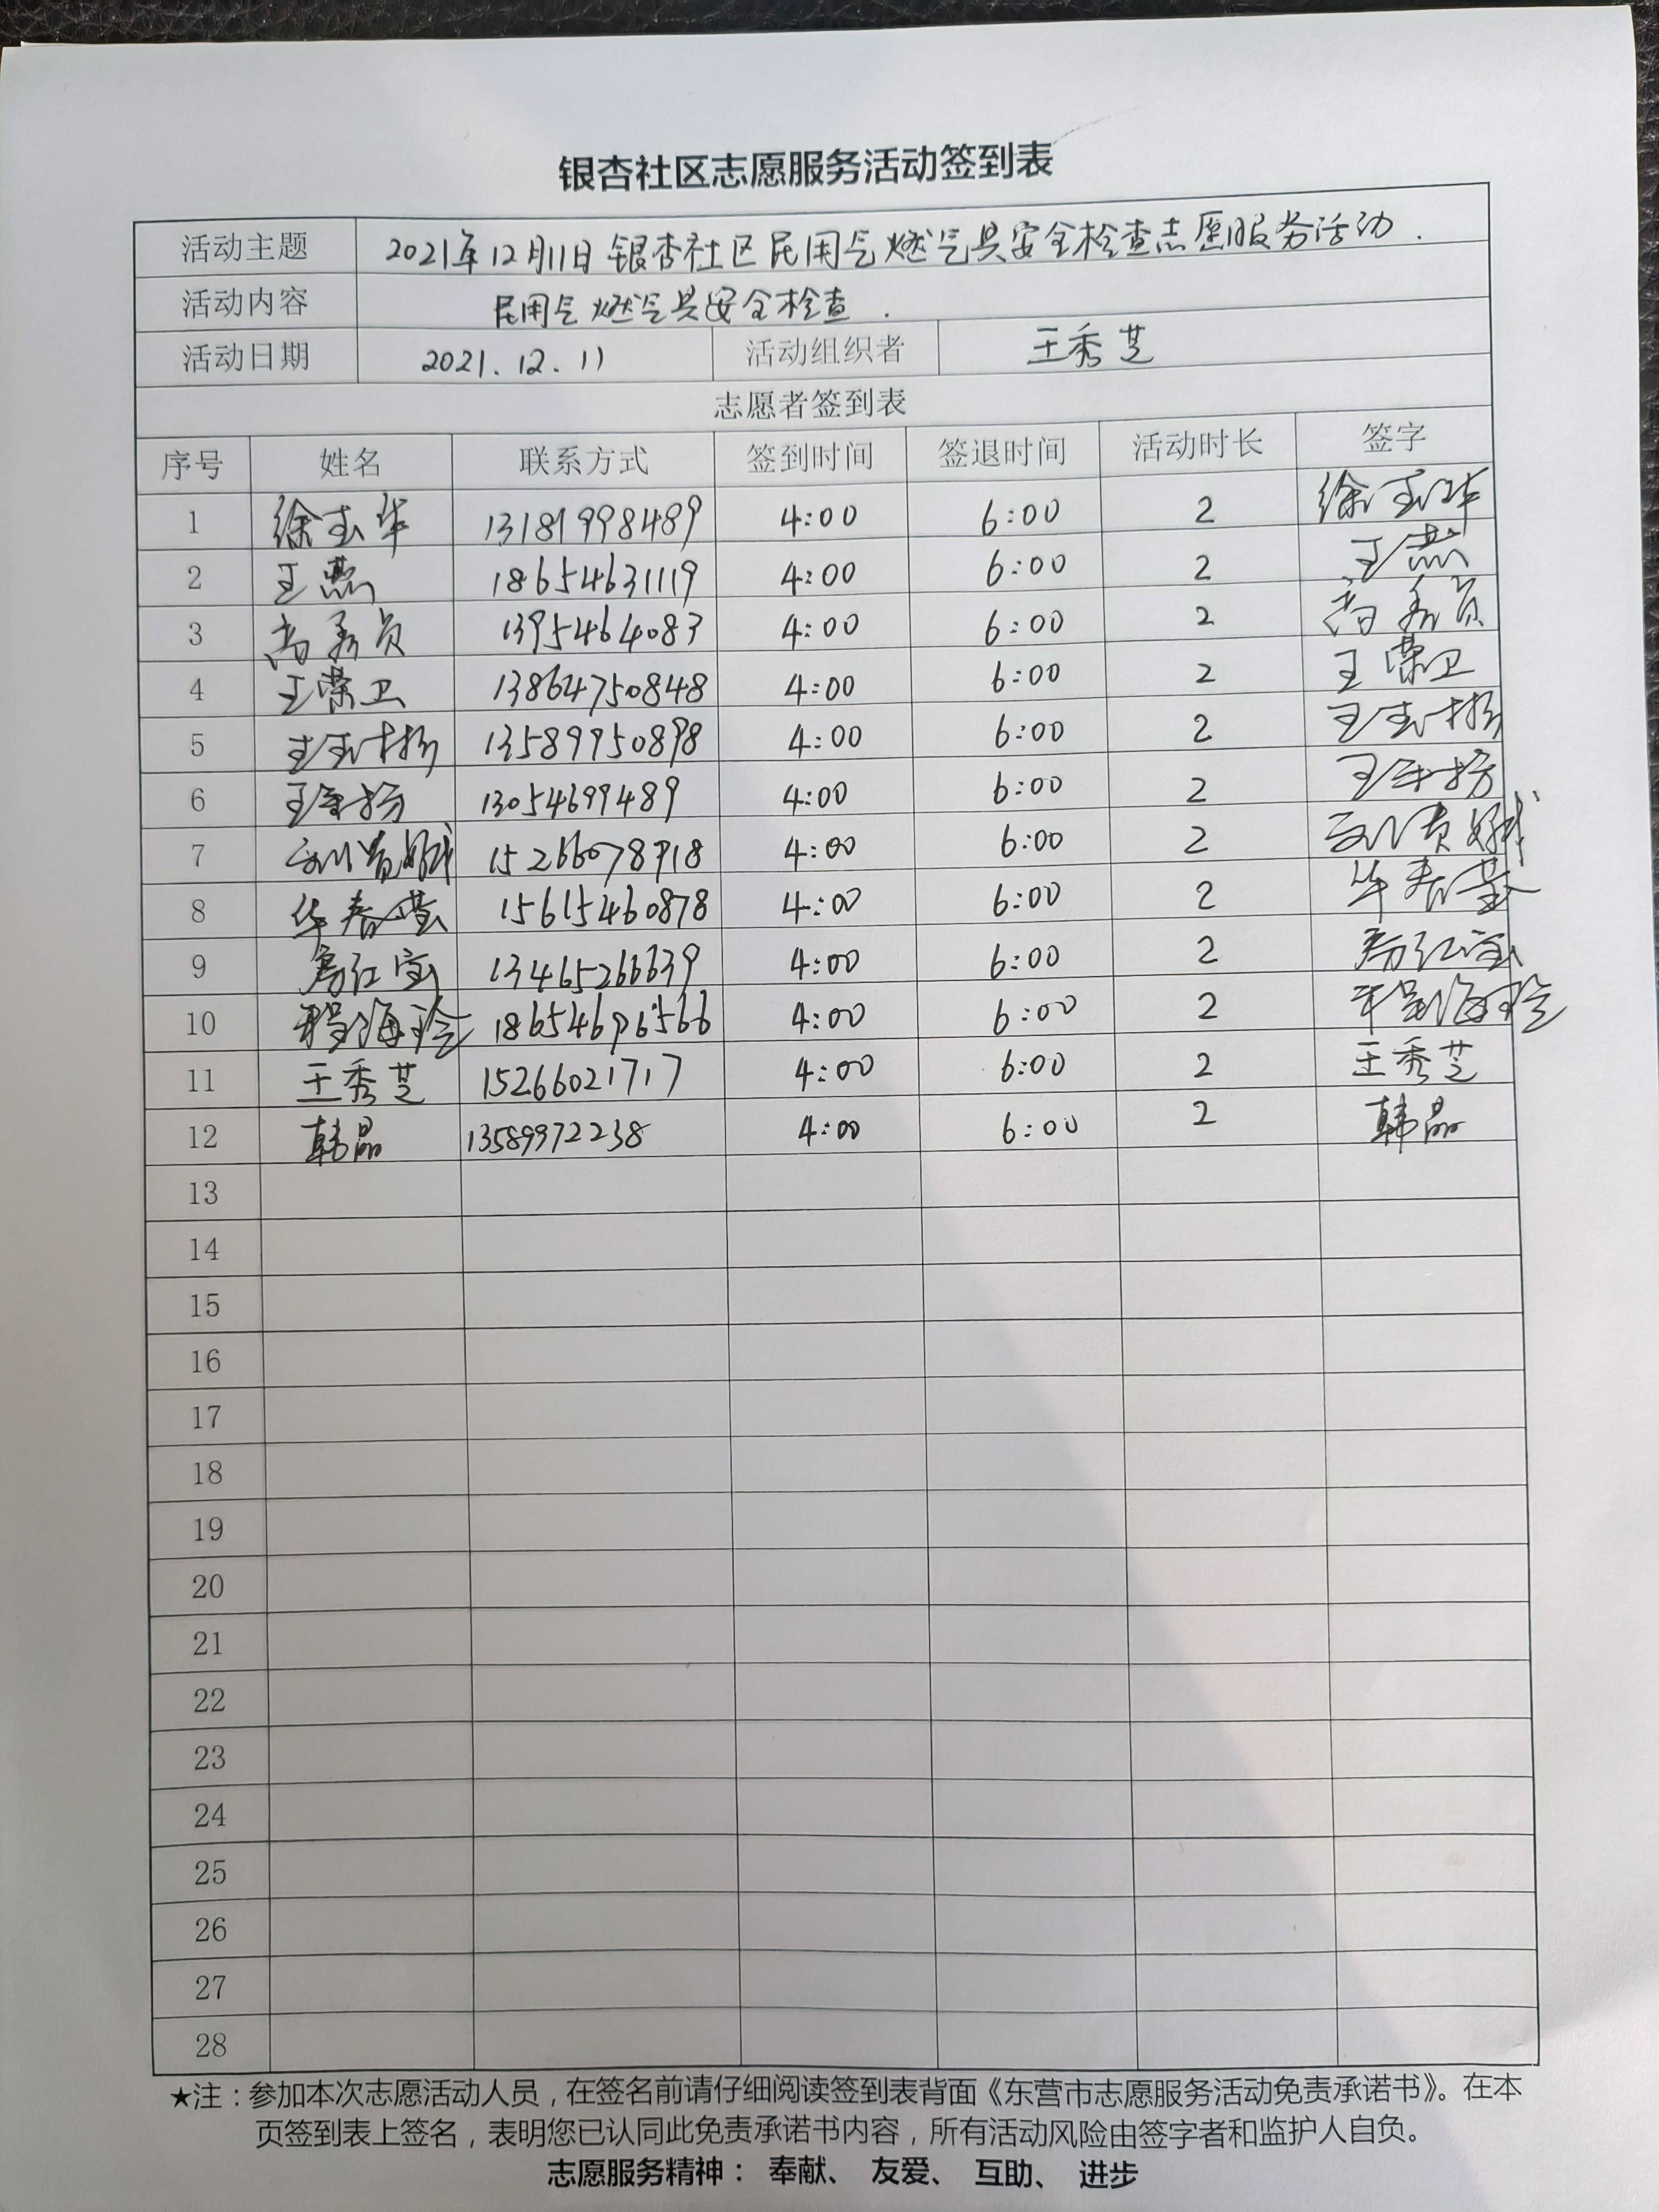 银杏社区志愿服务活动签到表
活动主题 2021年12月11日银杏社区民用气燃气具安全检查志愿服务活动.
活动内容 民用气燃气具安全检查.
活动日期 2021.12.11 活动组织者 王秀芝
志愿者签到表
序号 姓名 联系方式 签到时间 签退时间 活动时长 签字
1 徐玉华 13181998489 4:00 6:00 2 徐玉华
2 王燕 18654631119 4:00 6:00 2 王燕
3 1395464083 4:00 6:00 2
4 王荣卫 13864750848 4:00 6:00 2 王荣卫
5 13589950898 4:00 6:00 2
6 13054699489 4:00 6:00 2
7 15266078918 4:00 6:00 2
8 华春 15615460878 4:00 6:00 2 华春
9 13465266639 4:00 6:00 2
10 程海玲 18654696566 4:00 6:00 2 程海玲
11 王秀芝 15266021717 4:00 6:00 2 王秀芝
12 韩晶 13589972238 4:00 6:00 2 韩晶
13
14
15
16
17
18
19
20
21
22
23
24
25
26
27
28
★注：参加本次志愿活动人员，在签名前请仔细阅读签到表背面《东营市志愿服务活动免责承诺书》。在本
页签到表上签名，表明您已认同此免责承诺书内容，所有活动风险由签字者和监护人自负。
志愿服务精神： 奉献、 友爱、 互助、 进步